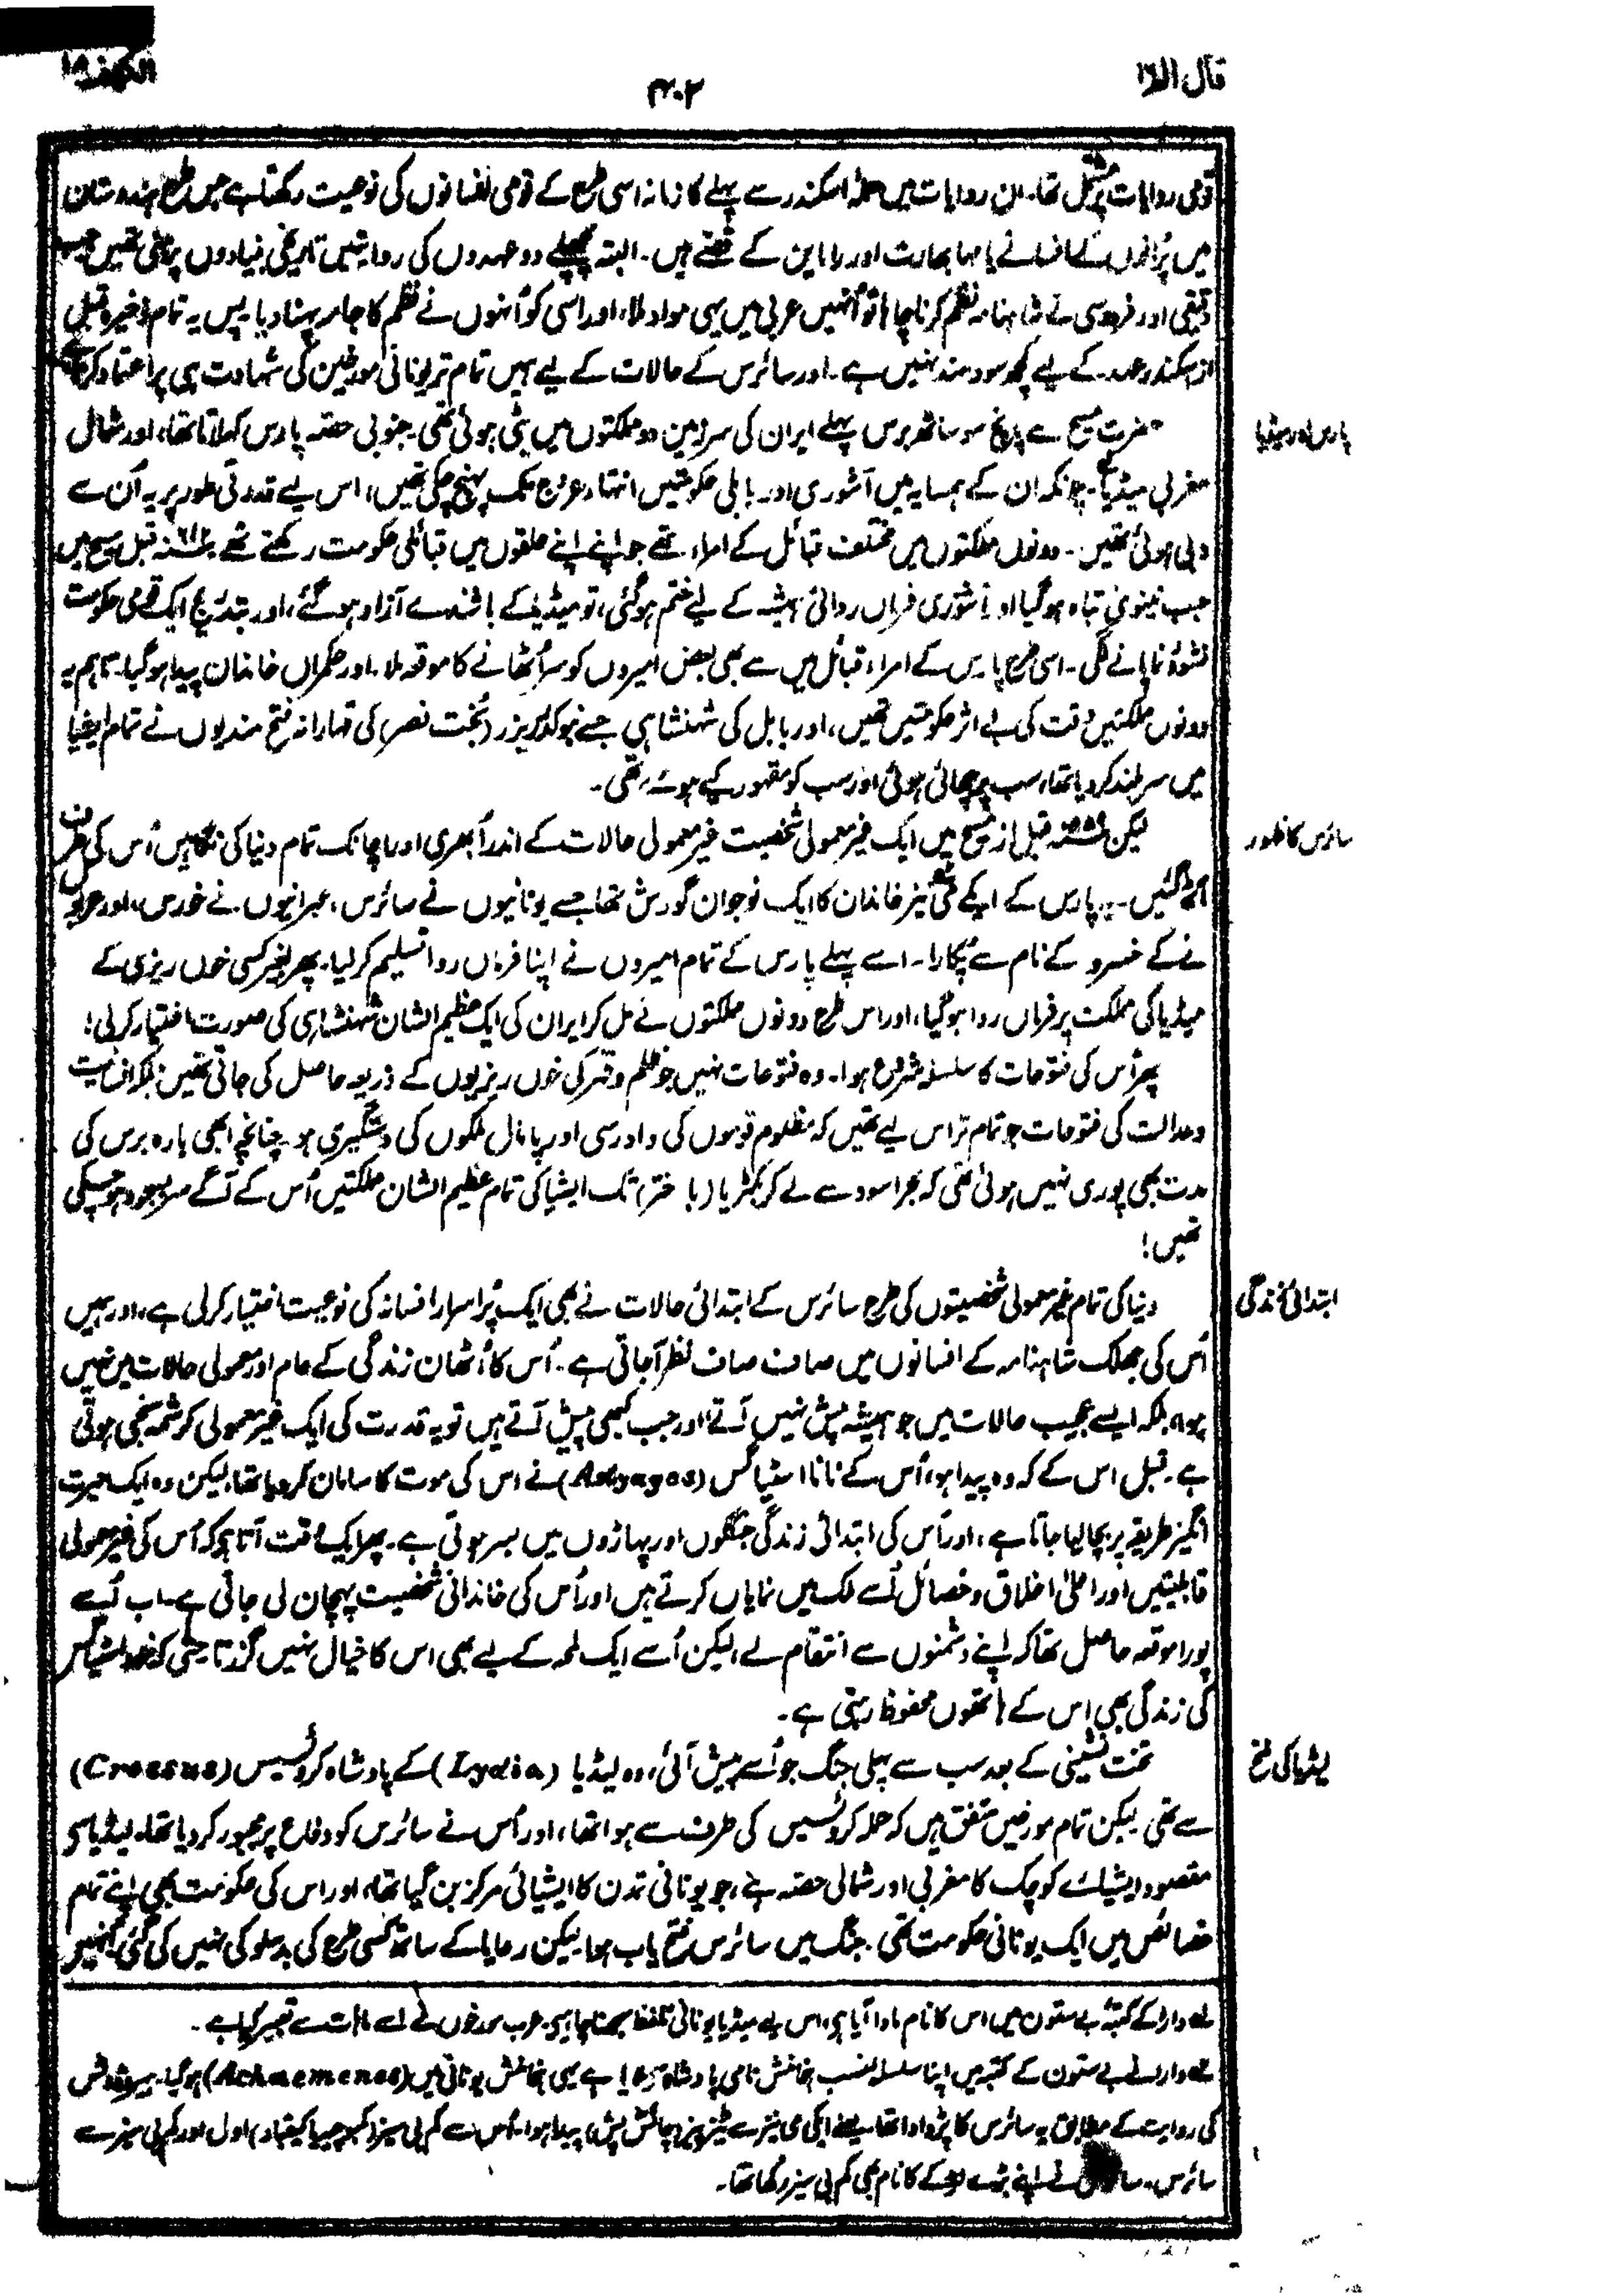 قال الم ۱۶
۴۰۲
الکہف ۱۸
قومی روایات پر مشتمل تھا۔ ان روایات میں حملۂ اسکندر سے پہلے کا زمانہ اسی طرح کے قومی افسانوں کی نوعیت رکھتا ہے جس طرح ہندوستان
میں پُرانوں کے افسانے یا مہابھارت اور رامائن کے قصّے ہیں۔ البتہ پچھلے دو عہدوں کی روایتیں تاریخی بنیادوں پر مبنی تھیں جب
دقیقی اور فردوسی نے شاہنامہ نظم کرنا چاہا تو اُنہیں عربی میں یہی مواد ملا، اور اسی کو اُنہوں نے نظم کا جامہ پہنا دیا۔ پس یہ تمام ذخیرہ قبل
از سکندر عہد کے لیے کچھ سودمند نہیں ہے۔ اور سائرس کے حالات کے لیے ہمیں تمام تر یونانی مورخین کی شہادت ہی پر اعتماد کرنا ہے
پارس اور میڈیا
حضرت مسیح سے پانچ سو ساٹھ برس پہلے ایران کی سرزمین دو مملکتوں میں بٹی ہوئی تھی۔ جنوبی حصّہ پارس کہلاتا تھا، اور شمال
مغربی میڈیا۔ چونکہ ان کے ہمسایہ میں آشوری اور بابلی حکومتیں انتہاء عروج تک پہنچ چکی تھیں، اس لیے قدرتی طور پر یہ اُن سے
دبی ہوئی تھیں۔ دونوں مملکتوں میں مختلف قبائل کے امراء تھے جو اپنے اپنے حلقوں میں قبائلی حکومت رکھتے تھے۔ ۶۱۲ قبل مسیح میں
جب نینویٰ تباہ ہو گیا اور آشوری فرماں روائی ہمیشہ کے لیے ختم ہو گئی، تو میڈیا کے باشندے آزاد ہو گئے، اور بتدریج ایک قومی حکومت
نشوونما پانے لگی۔ اسی طرح پارس کے امراء قبائل میں سے بھی بعض امیروں کو سر اُٹھانے کا موقعہ ملا، اور حکمراں خاندان پیدا ہو گیا۔ تاہم یہ
دونوں مملکتیں وقت کی بے اثر حکومتیں تھیں، اور بابل کی شہنشاہی جسے نبوکدرزر (بُخت نصر) کی قہارانہ فتح مندیوں نے تمام ایشیا
میں سربلند کر دیا تھا، سب پر چھائی ہوئی اور سب کو مقہور کیے ہوئے تھی۔
سائرس کا ظہور
لیکن ۵۵۹ قبل از مسیح میں ایک غیر معمولی شخصیت غیر معمولی حالات کے اندر اُبھری اور اچانک تمام دنیا کی نگاہیں اُس کی طرف
اُٹھ گئیں۔ پارس کے ایکے می نیز خاندان کا ایک نوجوان گورش تھا جسے یونانیوں نے سائرس، عبرانیوں نے خورس، اور عربوں
نے کے خسرو کے نام سے پُکارا۔ اسے پہلے پارس کے تمام امیروں نے اپنا فرماں روا تسلیم کر لیا۔ پھر بغیر کسی خوں ریزی کے
میڈیا کی مملکت پر فرماں روا ہو گیا، اور اس طرح دونوں مملکتوں نے مل کر ایران کی ایک عظیم الشان شہنشاہی کی صورت اختیار کر لی!
پھر اُس کی فتوحات کا سلسلہ شروع ہوا۔ وہ فتوحات نہیں جو ظلم و قہر کی خوں ریزیوں کے ذریعہ حاصل کی جاتی تھیں، بلکہ انسانیت
و عدالت کی فتوحات جو تمام تر اس لیے تھیں کہ مظلوم قوموں کی دادرسی اور پامال ملکوں کی دستگیری ہو۔ چنانچہ ابھی بارہ برس کی
مدت بھی پوری نہیں ہوئی تھی کہ بحر اسود سے لے کر بکٹریا (باختر) تک ایشیا کی تمام عظیم الشان مملکتیں اُس کے آگے سر بسجود ہو چکی
تھیں!
ابتدائی زندگی
دنیا کی تمام غیر معمولی شخصیتوں کی طرح سائرس کے ابتدائی حالات نے بھی ایک پُراسرار افسانہ کی نوعیت اختیار کر لی ہے، اور ہمیں
اُس کی جھلک شاہنامہ کے افسانوں میں صاف صاف نظر آ جاتی ہے۔ اُس کا اُٹھان زندگی کے عام اور معمولی حالات میں نہیں
ہوا، بلکہ ایسے عجیب حالات میں جو ہمیشہ پیش نہیں آتے، اور جب کبھی پیش آتے ہیں تو یہ قدرت کی ایک غیر معمولی کرشمہ سنجی ہوتی
ہے۔ قبل اس کے کہ وہ پیدا ہو، اُس کے نانا اسٹیاگس (Astyages) نے اس کی موت کا سامان کر دیا تھا، لیکن وہ ایک حیرت
انگیز طریقہ پر بچا لیا جاتا ہے، اور اُس کی ابتدائی زندگی جنگلوں اور پہاڑوں میں بسر ہوتی ہے۔ پھر ایک وقت آتا ہے کہ اُس کی غیر معمولی
قابلیتیں اور اعلیٰ اخلاق و خصائل اُسے ملک میں نمایاں کرتے ہیں اور اُس کی خاندانی شخصیت پہچان لی جاتی ہے۔ اب اُسے
پورا موقعہ حاصل تھا کہ اپنے دشمنوں سے انتقام لے، لیکن اُسے ایک لمحہ کے لیے بھی اس کا خیال نہیں گزرتا۔ حتیٰ کہ خود اسٹیاگس
کی زندگی بھی اس کے ہاتھوں محفوظ رہتی ہے۔
لیڈیا کی فتح
تخت نشینی کے بعد سب سے پہلی جنگ جو اُسے پیش آئی، وہ لیڈیا (Lydia) کے پادشاہ کروئسیس (Croesus)
سے تھی لیکن تمام مورخین متفق ہیں کہ حملہ کروئسیس کی طرف سے ہوا تھا، اور اُس نے سائرس کو دفاع پر مجبور کر دیا تھا۔ لیڈیا سے
مقصود ایشیائے کوچک کا مغربی اور شمالی حصّہ ہے، جو یونانی تمدن کا ایشیائی مرکز بن گیا تھا، اور اس کی حکومت بھی اپنے تمام
خصائص میں ایک یونانی حکومت تھی۔ جنگ میں سائرس فتح یاب ہوا۔ لیکن رعایا کے ساتھ کسی طرح کی بدسلوکی نہیں کی گئی، اُنہیں
لہ دارا کے کتبۂ بے ستون میں اس کا نام مادا آیا ہے، اس لیے میڈیا یونانی تلفظ سمجھنا چاہیے۔ عرب مورخوں نے اسے ماہات سے تعبیر کیا ہے۔
دارا نے بے ستون کے کتبہ میں اپنا سلسلۂ نسب ہخامنش نامی پادشاہ سے ملایا ہے یہی ہخامنش یونانی میں (Achaemenes) ہو گیا۔ ہیروڈوٹس
کی روایت کے مطابق یہ سائرس کا پڑدادا تھا۔ یعنی ایکی می نیز سے ٹیز پیز (چائش پش) پیدا ہوا۔ اُس سے کم بی سیز (کمبوجیا کیقباد) اول اور کم بی سیز سے
سائرس۔ سائرس نے اپنے بڑے لڑکے کا نام بھی کم بی سیز رکھا تھا۔